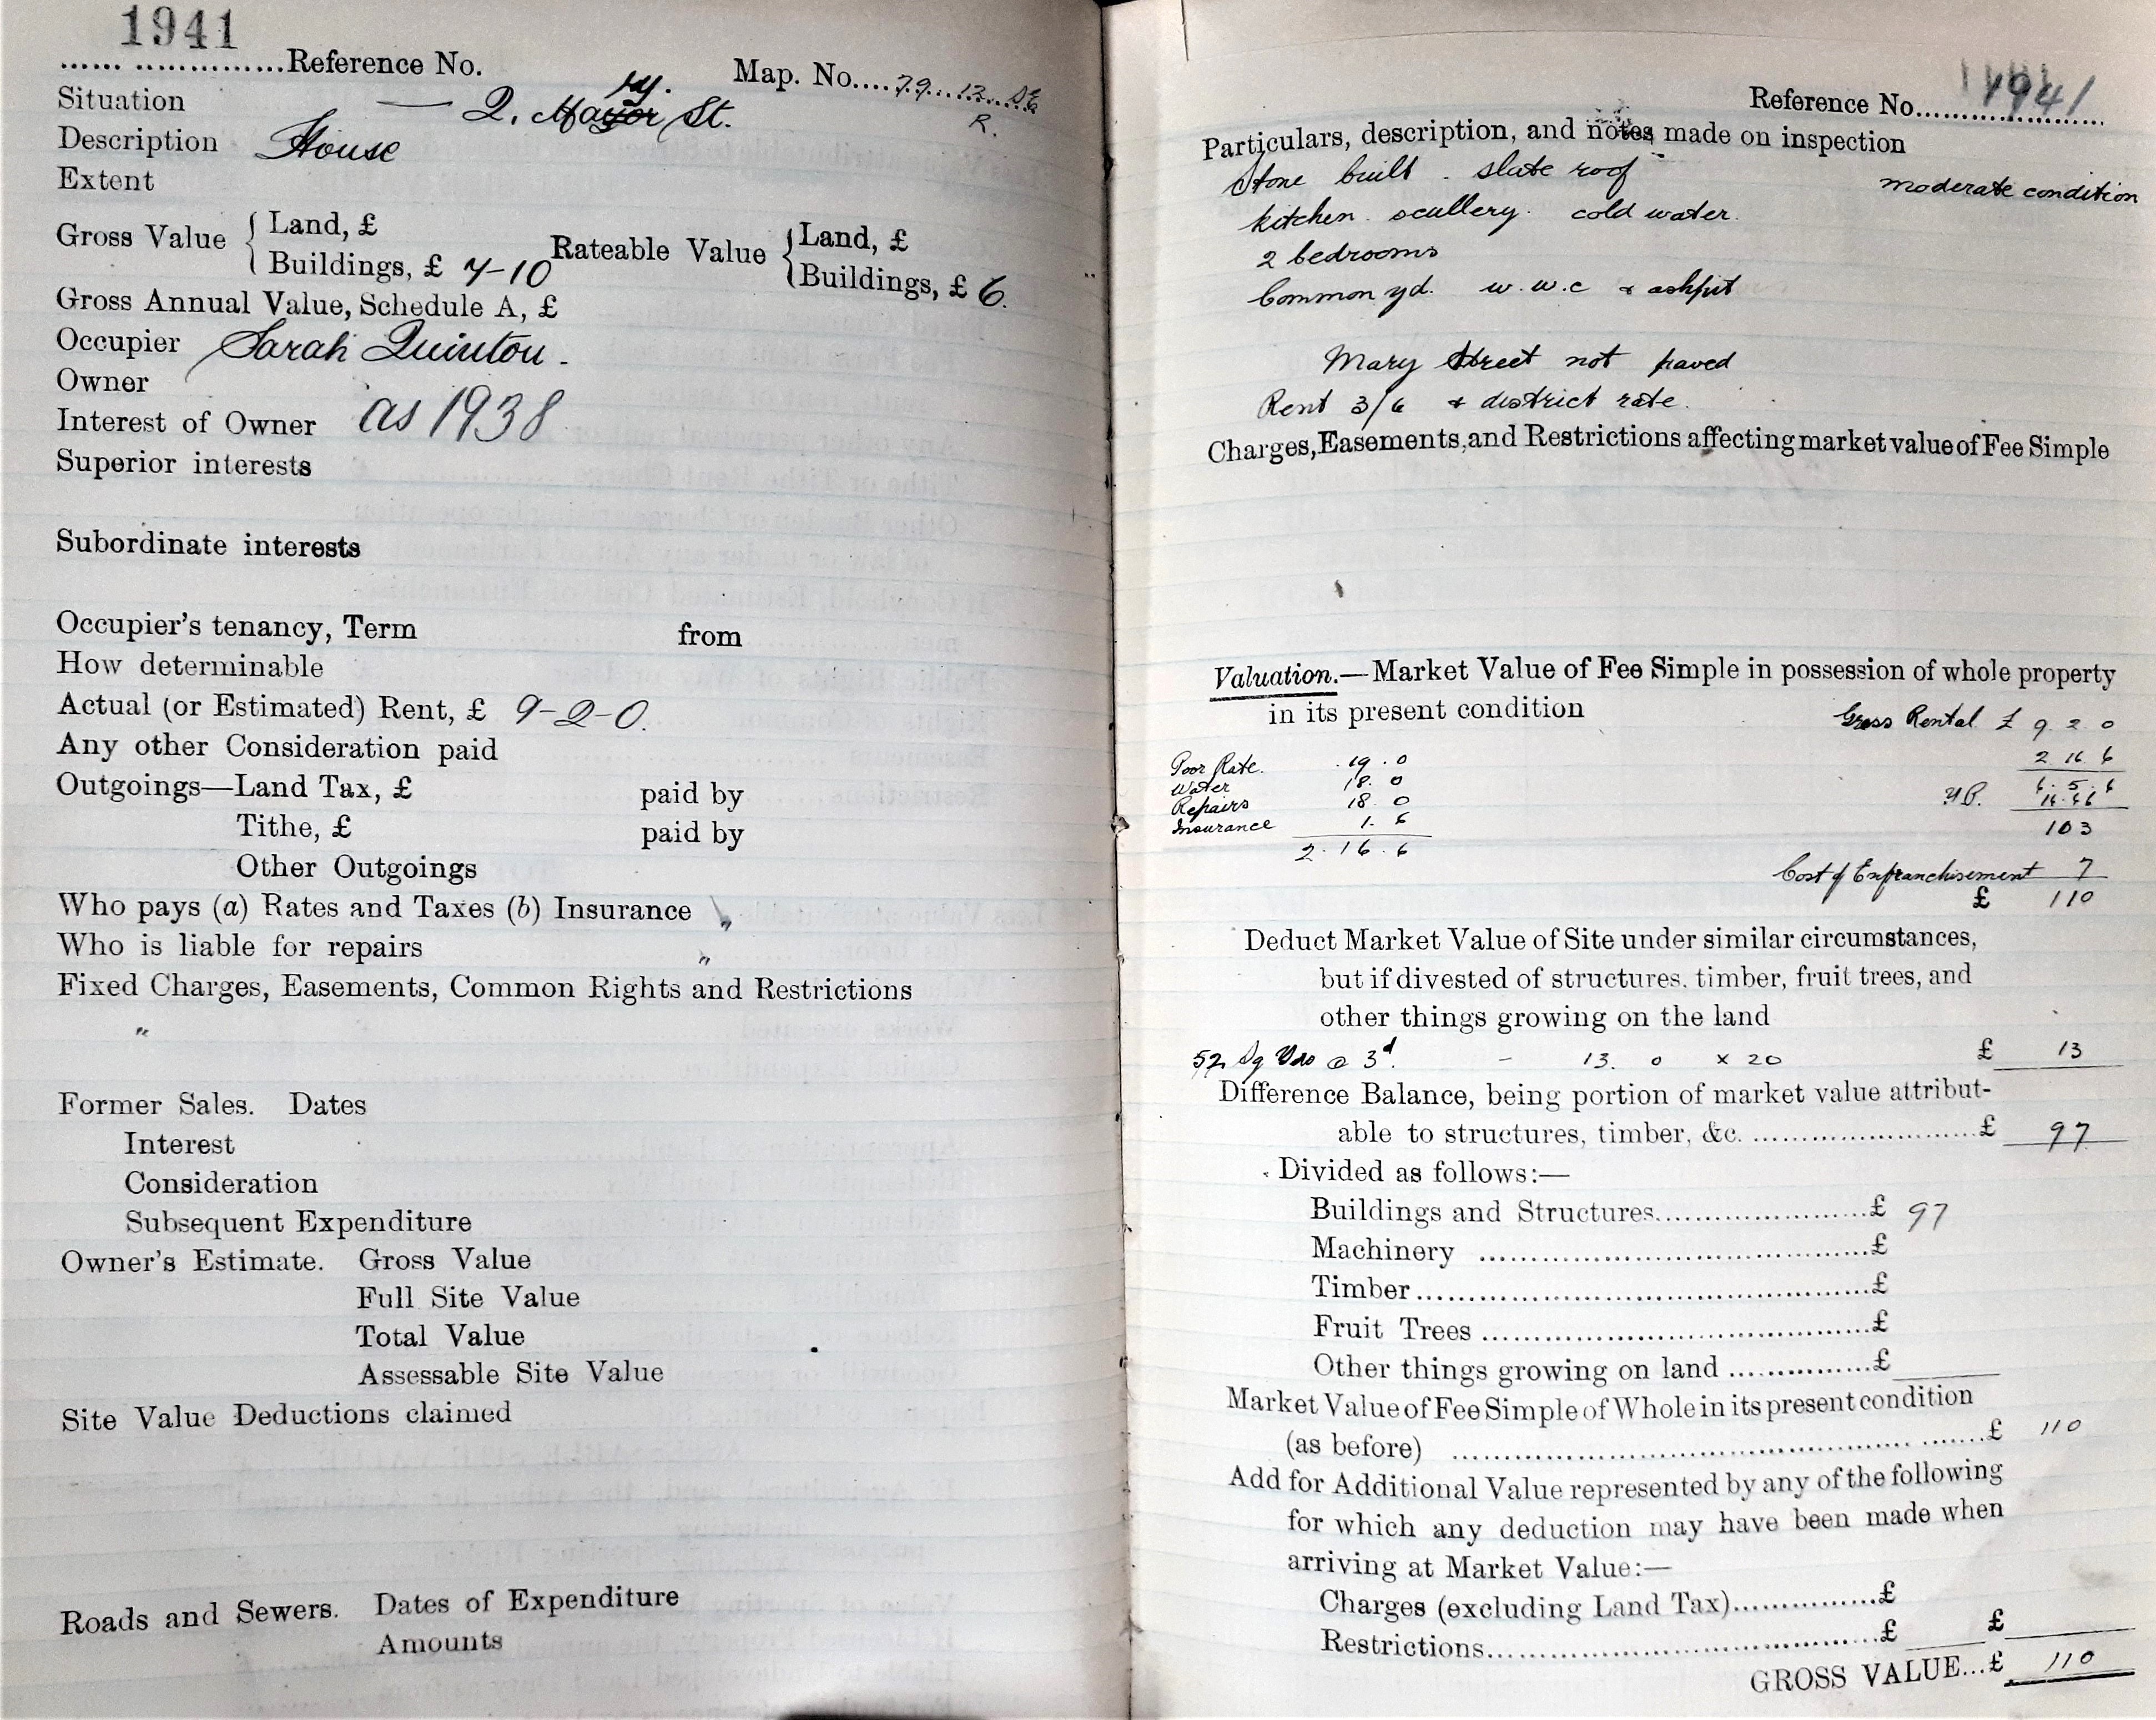 1941
...... ...............Reference No.
Map. No....79...12...SE
R.
Situation — 2, Mayor St.
ry.
Description House
Extent
Gross Value { Land, £
Buildings, £ 7-10
Rateable Value { Land, £
Buildings, £ 6.
Gross Annual Value, Schedule A, £
Occupier Sarah Quinton.
Owner
Interest of Owner as 1938
Superior interests
Subordinate interests
Occupier's tenancy, Term from
How determinable
Actual (or Estimated) Rent, £ 9-2-0.
Any other Consideration paid
Outgoings—Land Tax, £ paid by
Tithe, £ paid by
Other Outgoings
Who pays (a) Rates and Taxes (b) Insurance "
Who is liable for repairs "
Fixed Charges, Easements, Common Rights and Restrictions
"
Former Sales. Dates
Interest
Consideration
Subsequent Expenditure
Owner's Estimate. Gross Value
Full Site Value
Total Value
Assessable Site Value
Site Value Deductions claimed
Roads and Sewers. Dates of Expenditure
Amounts
Reference No. 1941
Particulars, description, and notes made on inspection
Stone built . slate roof moderate condition
kitchen . scullery . cold water.
2 bedrooms
Common yd. w.w.c & ashpit
Mary Street not paved
Rent 3/6 & district rate.
Charges, Easements, and Restrictions affecting market value of Fee Simple
Valuation.—Market Value of Fee Simple in possession of whole property
in its present condition
Gross Rental £ 9 2 0
2 16 6
6. 5. 6
Y.P.
103
Poor Rate. . 19 . 0
Water 18. 0
Repairs 18. 0
Insurance 1. 6
2. 16. 6
Cost of Enfranchisement 7
£ 110
Deduct Market Value of Site under similar circumstances,
but if divested of structures, timber, fruit trees, and
other things growing on the land
52 Sq Yds @ 3d. - 13. 0 x 20 £ 13
Difference Balance, being portion of market value attribut-
able to structures, timber, &c. ........................£ 97
Divided as follows:—
Buildings and Structures......................£ 97
Machinery ........................................£
Timber..............................................£
Fruit Trees .......................................£
Other things growing on land ................£
Market Value of Fee Simple of Whole in its present condition
(as before) ......................................................£ 110
Add for Additional Value represented by any of the following
for which any deduction may have been made when
arriving at Market Value:—
Charges (excluding Land Tax)...............£
Restrictions........................................£ £
GROSS VALUE...£ 110